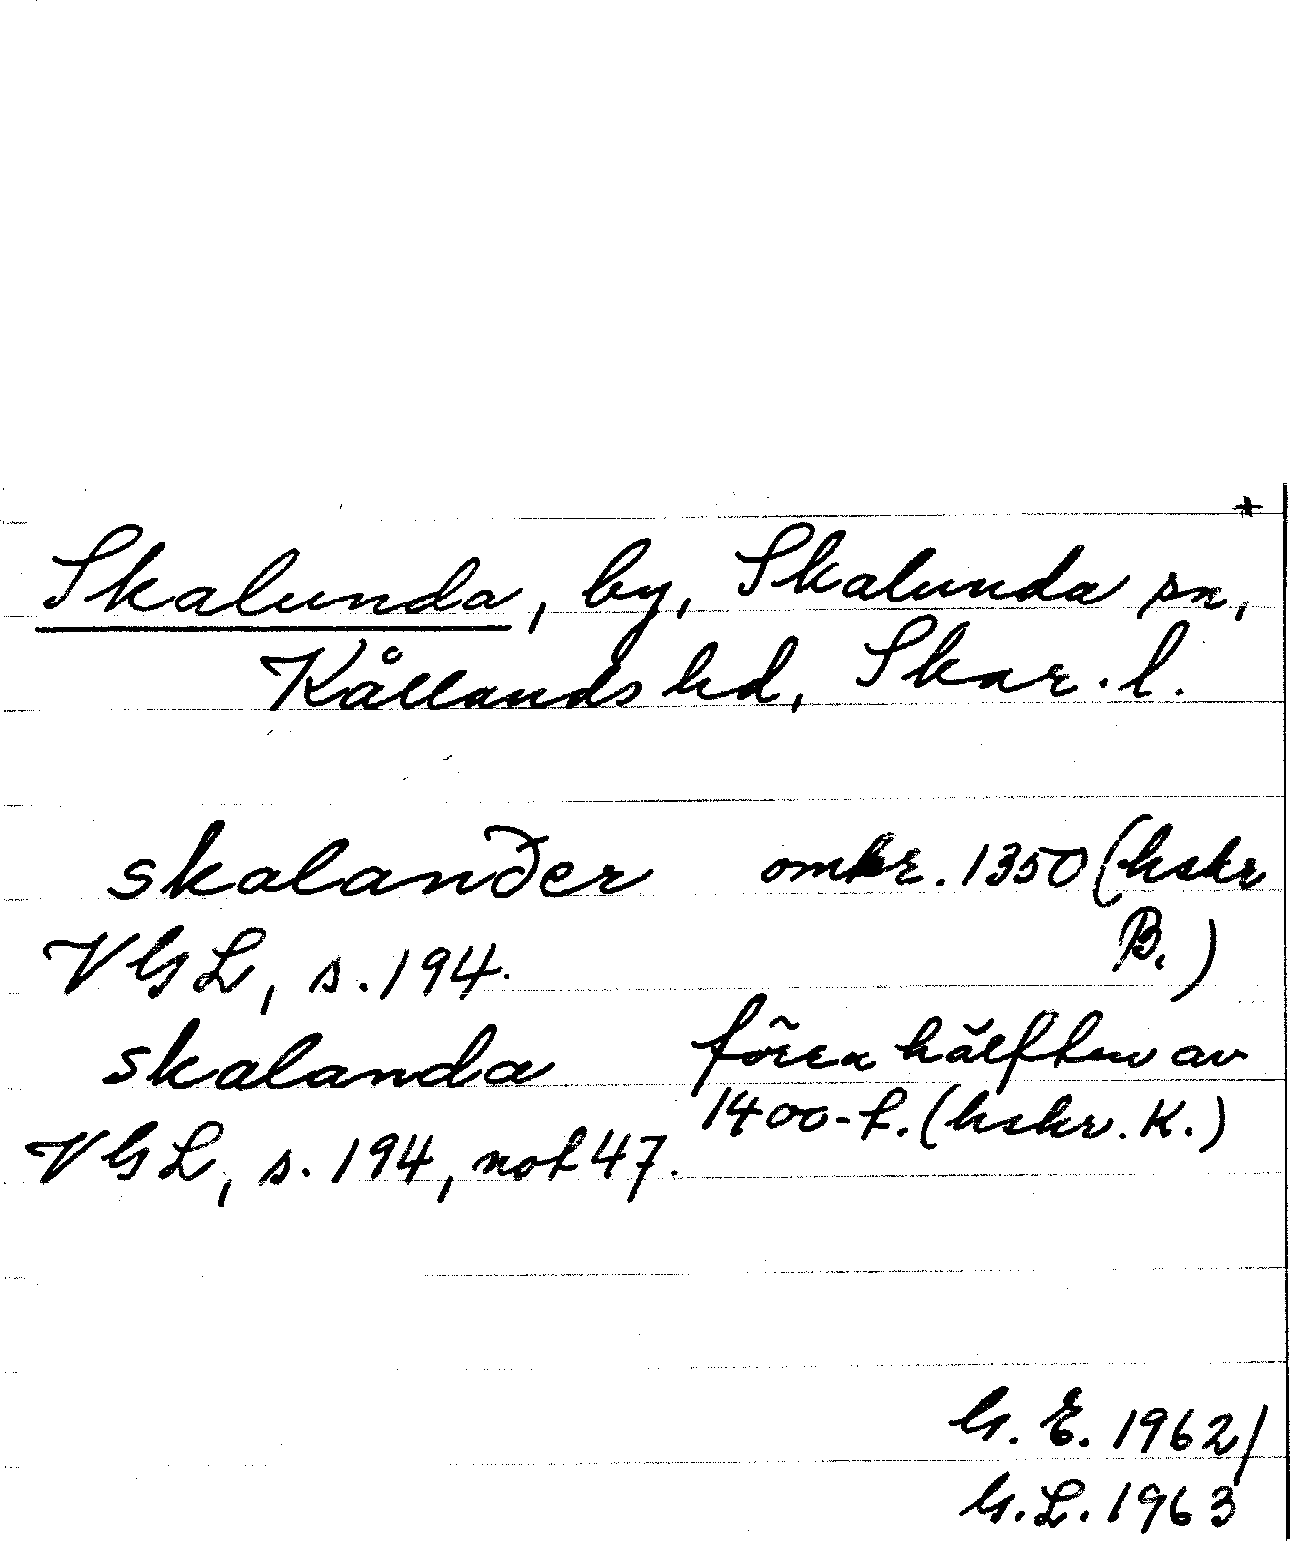 +
Skalunda, by, Skalunda sn,
Kållands hd, Skar. l.
skalander omkr. 1350 (hskr
VGL, s. 194. B.)
skalanda förra hälften av
1400-t. (hskr. K.)
VGL, s. 194, not 47.
G. E. 1962/
G. L. 1963